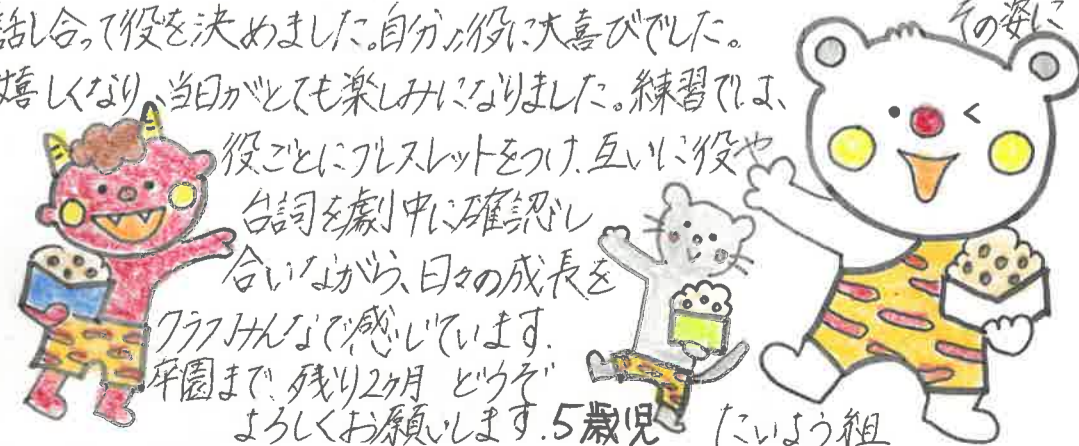 話し合って役を決めました。自分の役に大喜びでした。 その姿に
嬉しくなり、当日がとても楽しみになりました。練習では、
役ごとにブレスレットをつけ、互いに役や
台詞を劇中に確認し
合いながら、日々の成長を
クラスみんなで感じています。
卒園まで、残り2ヶ月 どうぞ
よろしくお願いします。5歳児 たいよう組